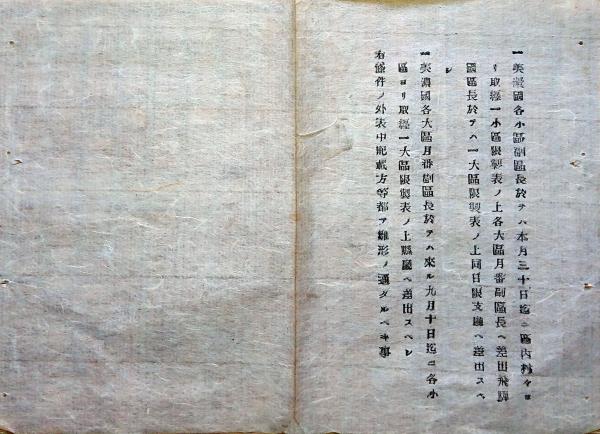 一美濃國各小區副區長於テハ本月三十日迄ニ區内村々ヨ
リ取纒一小區限製表ノ上各大區月番副區長ヘ差出飛驒
國區長於テハ一大區限製表ノ上同日限支廳ヘ差出スヘ
シ
一美濃國各大區月番副區長於テハ來ル九月十日迄ニ各小
區ヨリ取纒一大區限製表ノ上縣廳ヘ差出スヘシ
右條件ノ外表中記載方等都テ雛形ノ通タルヘキ事